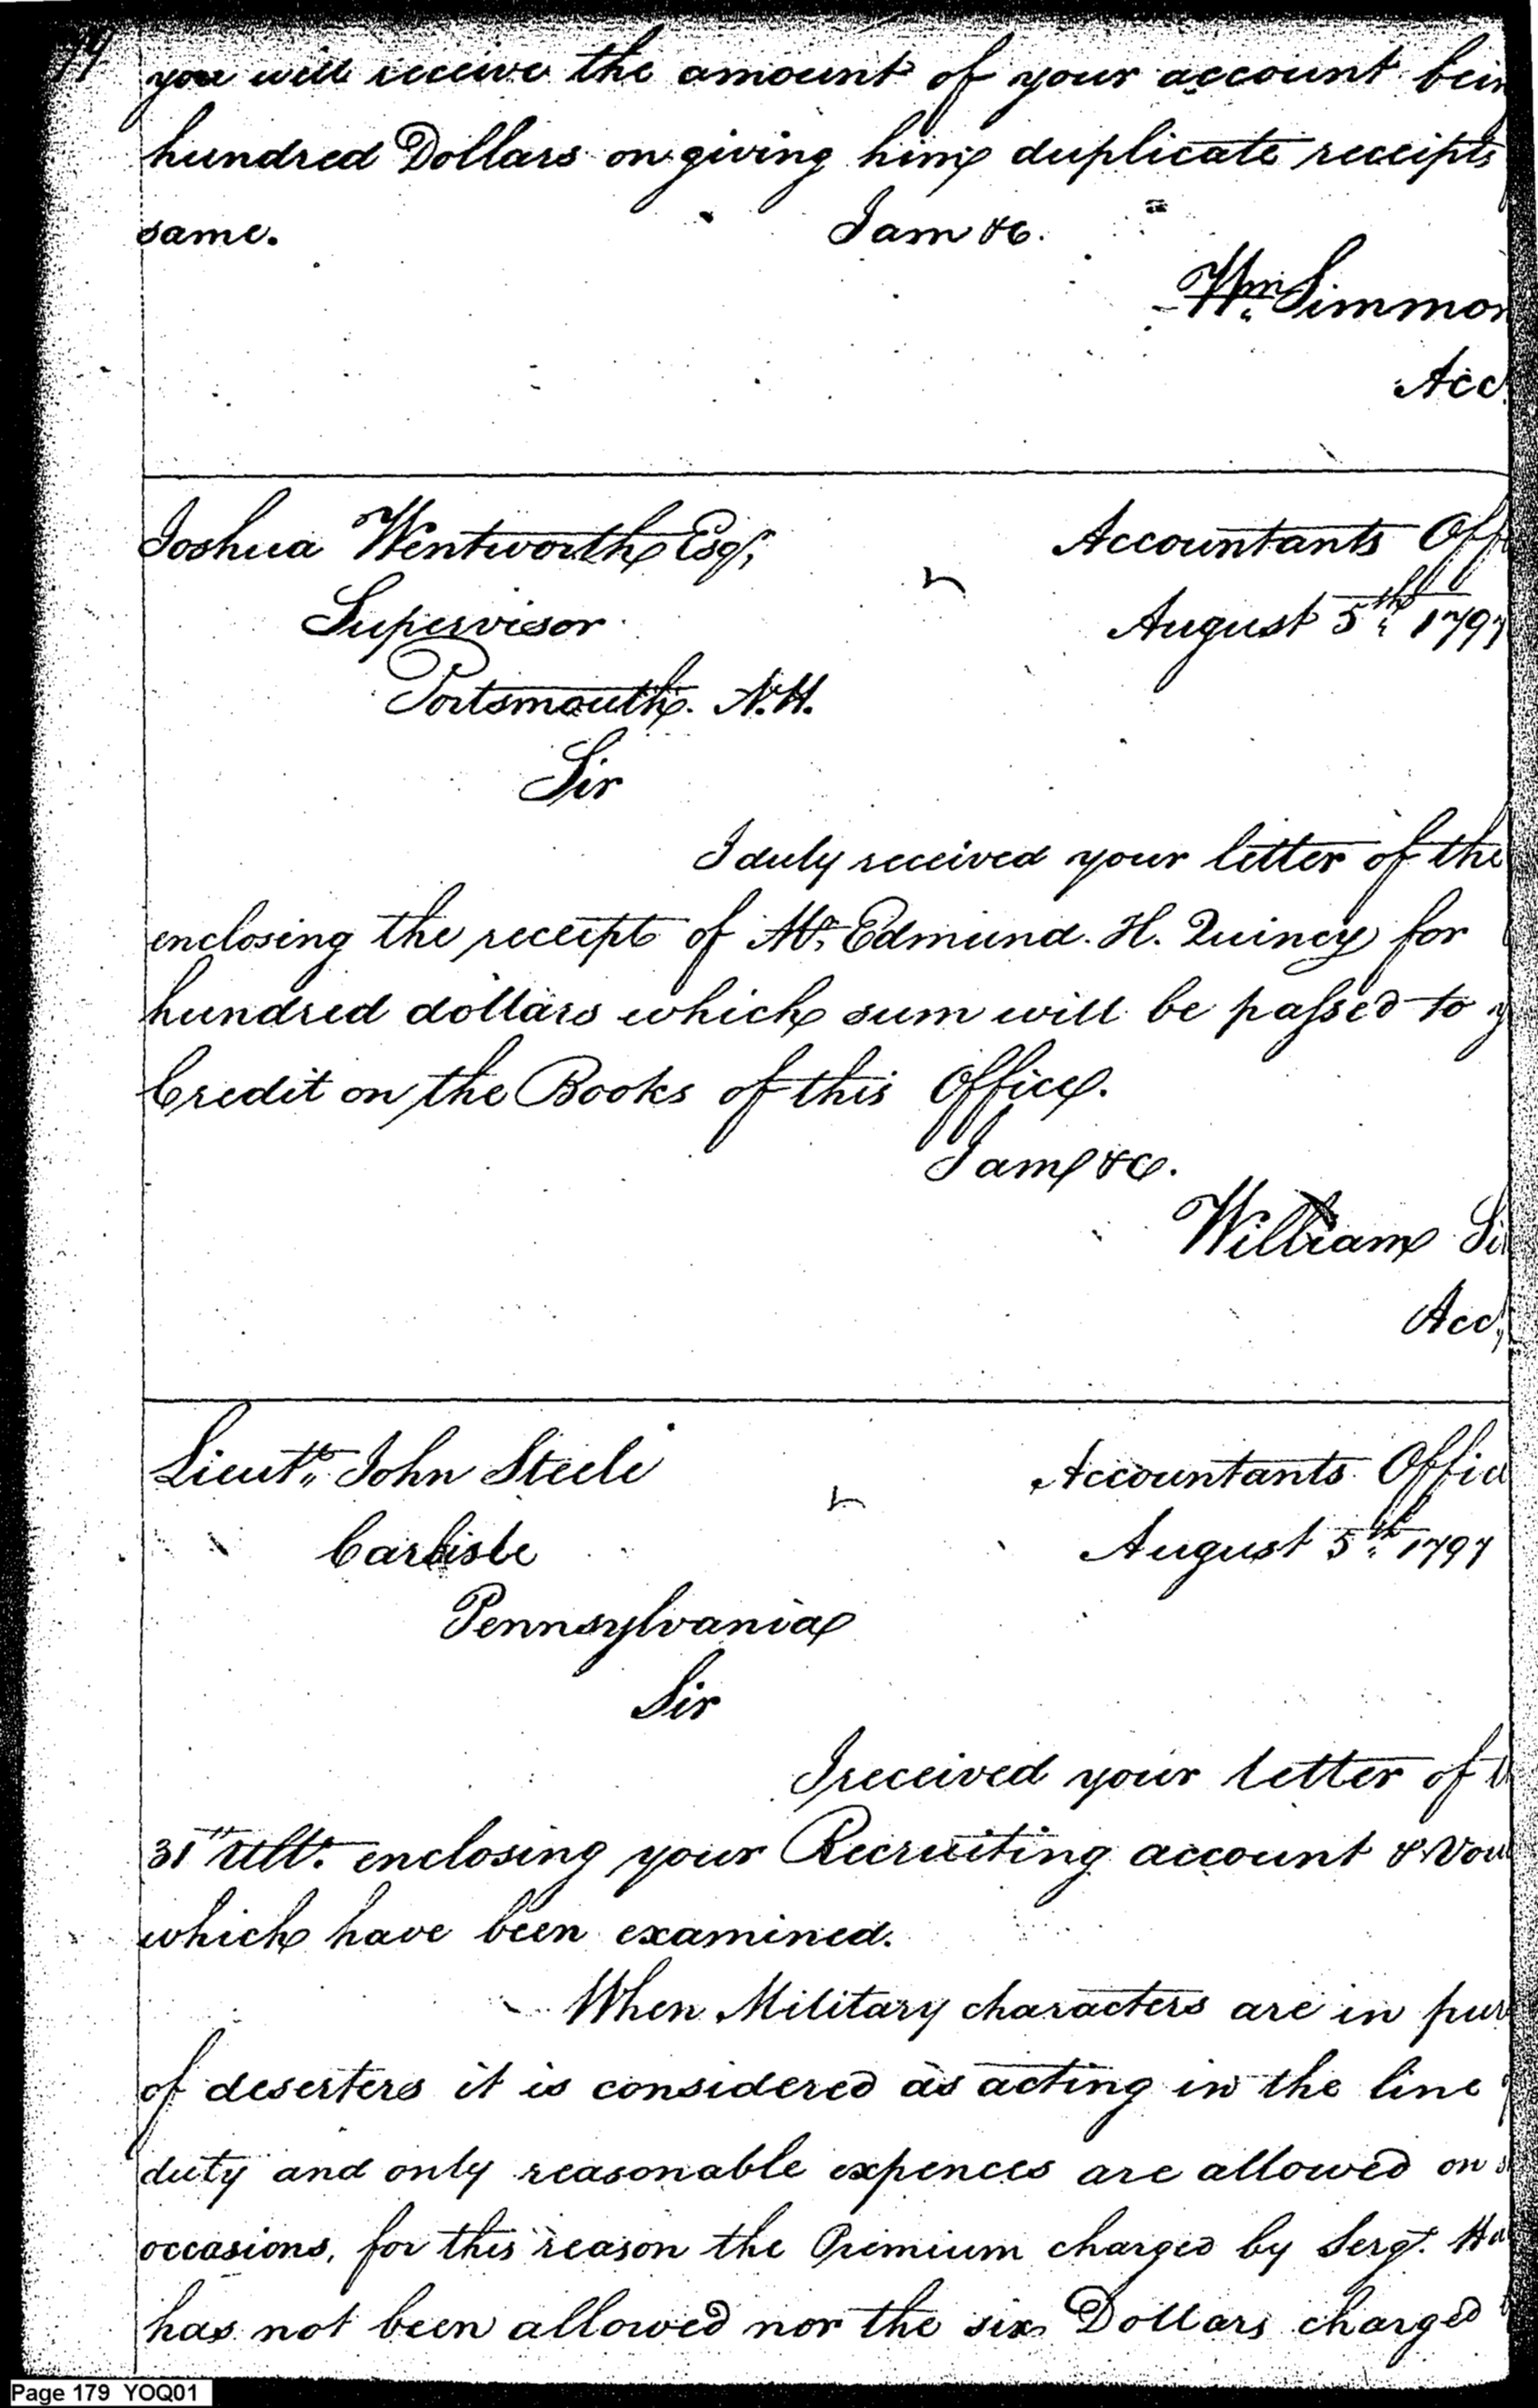 you will receive the amount of your account
hundred Dollars on giving him duplicate receipts
same. I am &c.
Wm Simmon
Acc
Joshua Wentworth Esqr, Accountants Off
Supervisor August 5th 1797
Portsmouth. N.H.
Sir
I duly received your letter of the
enclosing the receipt of Mr. Edmund. H. Quincy for
hundred dollars which sum will be passed to y
Credit on the Books of this Office.
I am &c.
William Si
Acc
Lieutt. John Steele Accountants Offic
Carlisle August 5th 1797
Pennsylvania
Sir
I received your letter of t
31st Ulto. enclosing your Recruiting account & Vou
which have been examined.
When Military characters are in pur
of deserters it is considered as acting in the line
duty and only reasonable expences are allowed on
occasions, for this reason the Premium charged by Sergt. Ha
has not been allowed nor the six Dollars charged
Page 179 YOQ01